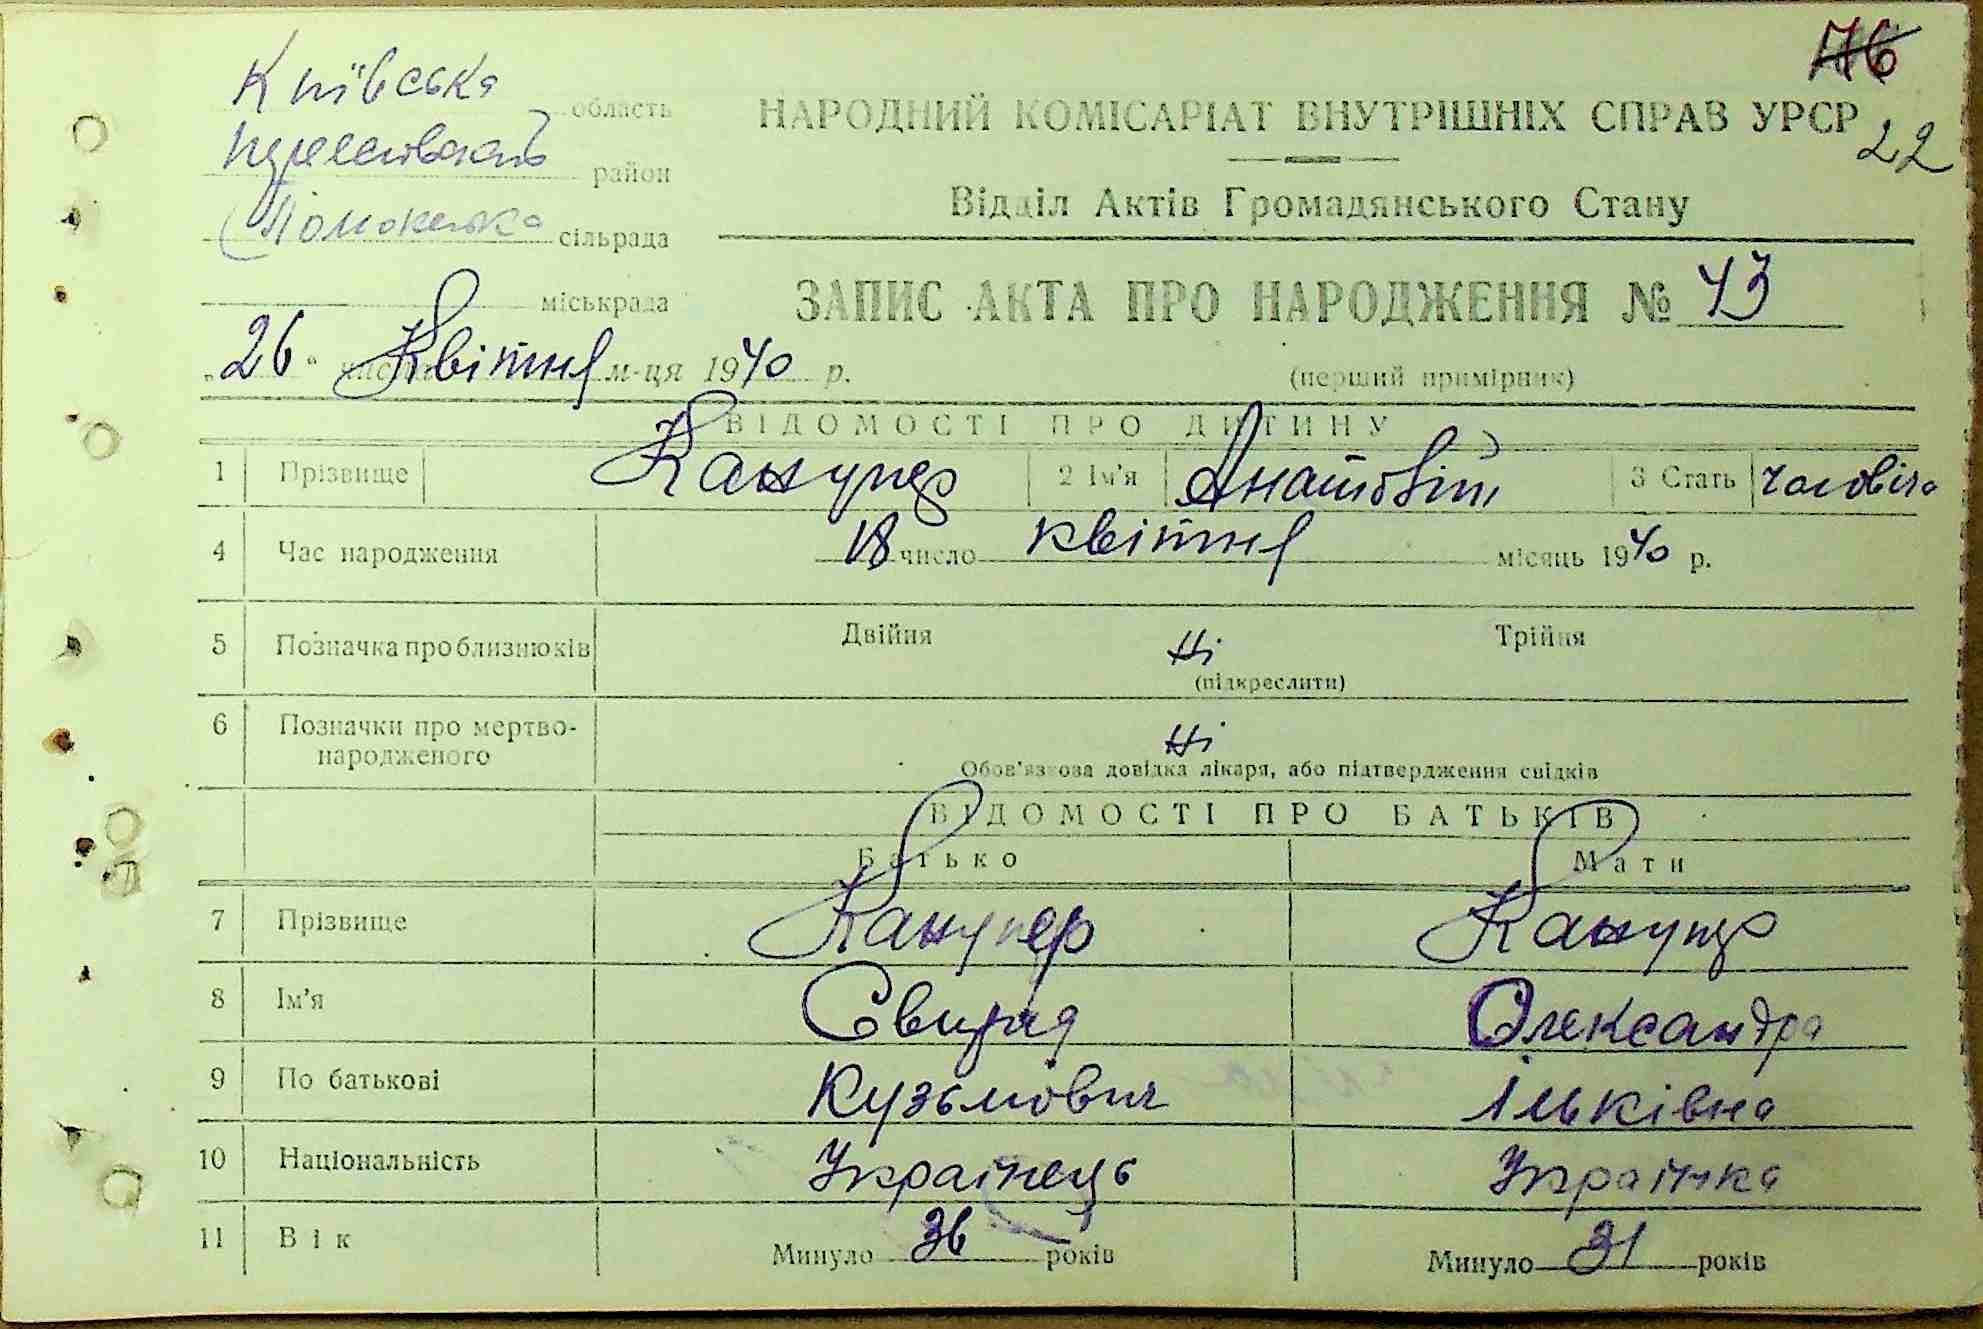 76
Київська область
22
район
сільрада
міськрада
НАРОДНИЙ КОМІСАРІАТ ВНУТРІШНІХ СПРАВ УРСР
Відділ Актів Громадянського Стану
ЗАПИС АКТА ПРО НАРОДЖЕННЯ № 43
„26“ числа Квітня м-ця 1940 р.
(перший примірник)
ВІДОМОСТІ ПРО ДИТИНУ
1 Прізвище Канупер 2 Ім'я Анатовій 3 Стать
4 Час народження 18 число квітня місяць 1940 р.
5 Позначка про близнюків Двійня Ні Трійня
(підкреслити)
6 Позначки про мертво-
народженого Ні
Обов'язкова довідка лікаря, або підтвердження свідків
ВІДОМОСТІ ПРО БАТЬКІВ
Батько Мати
7 Прізвище Канупер Канупер
8 Ім'я Свирид Олександра
9 По батькові Кузьмович Ільківна
10 Національність Українець Українка
11 Вік Минуло 36 років Минуло 31 років